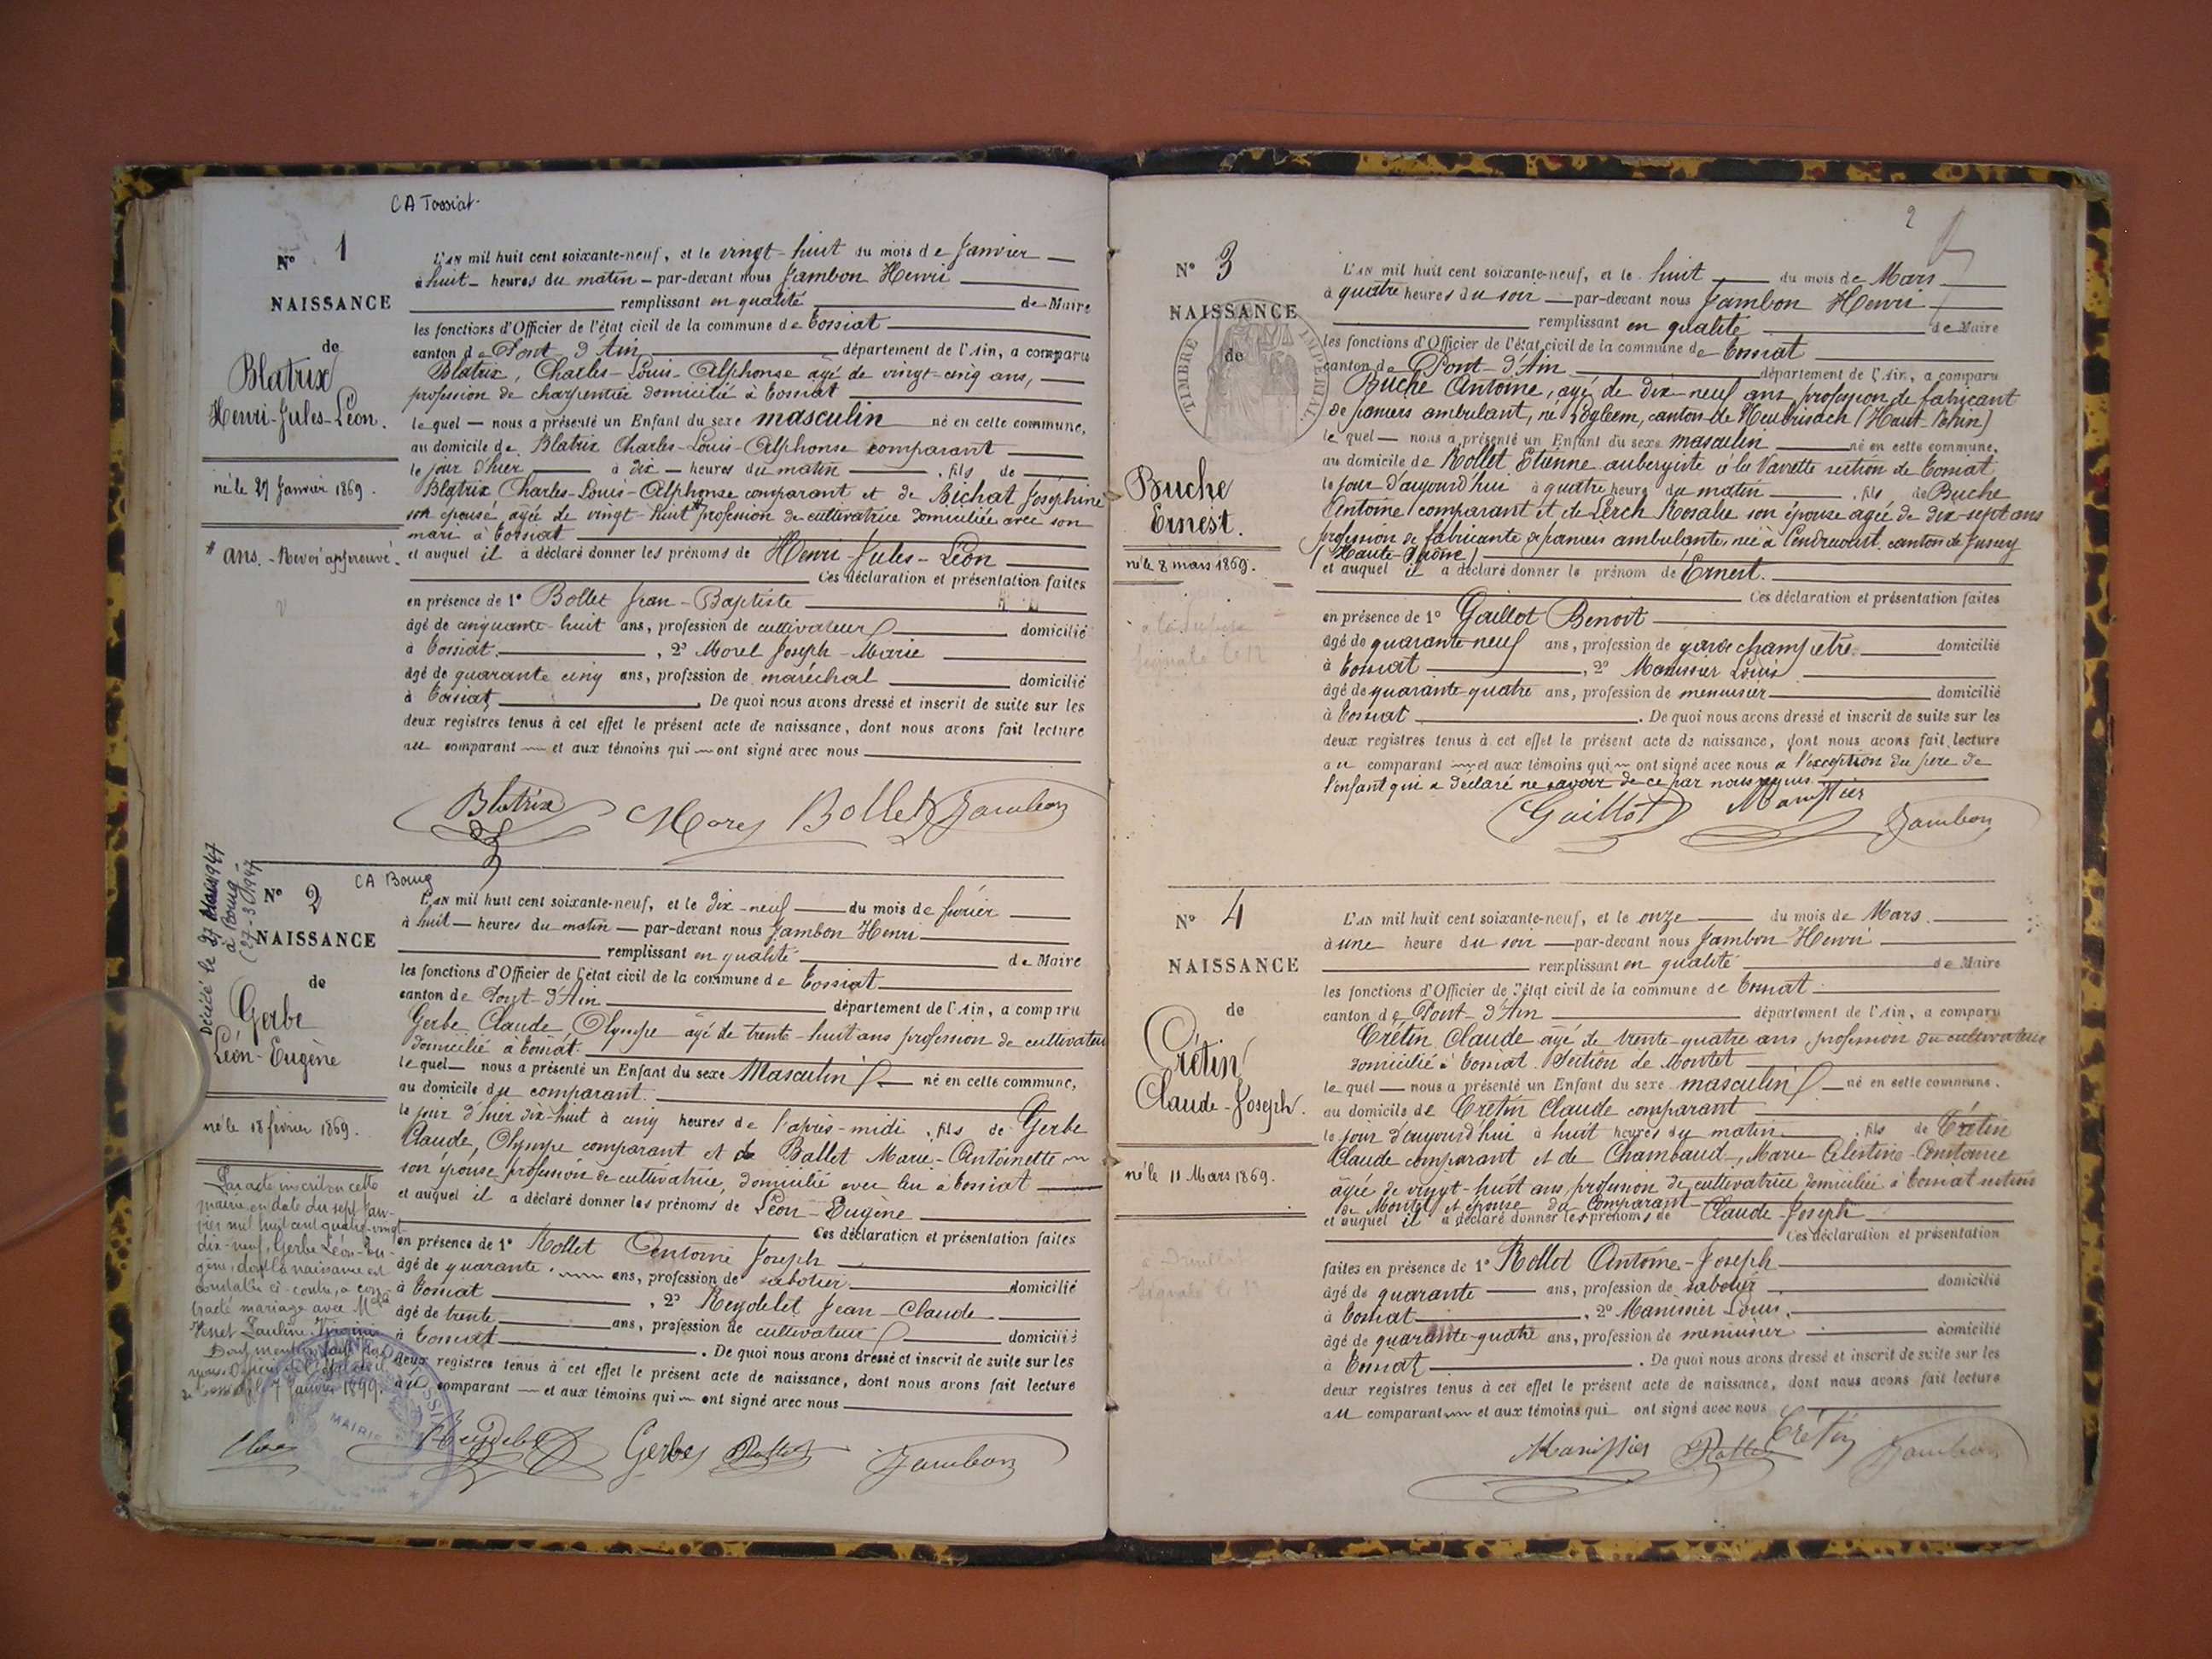 CA Tossiat
N° 1
NAISSANCE
de
Blatrix
Henri-Jules-Léon.
né le 27 Janvier 1869.
* ans. - Renvoi approuvé.
L'AN mil huit cent soixante-neuf, et le vingt-huit du mois de Janvier
à huit heures du matin par-devant nous Jambon Henri
remplissant en qualité de Maire
les fonctions d'Officier de l'état civil de la commune de Tossiat
canton de Pont-d'Ain département de l'Ain, a comparu
Blatrix, Charles-Louis-Alphonse agé de vingt-cinq ans,
profession de charpentier domicilié à Tossiat
le quel nous a présenté un Enfant du sexe masculin né en cette commune,
au domicile de Blatrix Charles-Louis-Alphonse comparant
le jour d'hier à dix heures du matin, fils de
Blatrix Charles-Louis-Alphonse comparant et de Bichat Joséphine
son épouse agée de vingt-huit * profession de cultivatrice domiciliée avec son
mari à Tossiat
et auquel il a déclaré donner les prénoms de Henri-Jules-Léon
Ces déclaration et présentation faites
en présence de 1° Bollet Jean-Baptiste
âgé de cinquante-huit ans, profession de cultivateur domicilié
à Tossiat, 2° Morel Joseph-Marie
âgé de quarante cinq ans, profession de maréchal domicilié
à Tossiat. De quoi nous avons dressé et inscrit de suite sur les
deux registres tenus à cet effet le présent acte de naissance, dont nous avons fait lecture
au comparant et aux témoins qui ont signé avec nous
Blatrix Morel Bollet Jambon
CA Bourg
N° 2
NAISSANCE
de
Gerbe
Léon-Eugène
né le 18 février 1869.
Décédé le 27 Mars 1947
à Bourg
(27-3-1947
Par acte inscrit en cette
mairie en date du sept Jan-
vier mil huit cent quatre-vingt-
dix-neuf, Gerbe Léon-Eu-
gène, dont la naissance est
constatée ci-contre, a con-
tracté mariage avec Melle
Pauline
Dont mention faite par
nous Officier de l'état civil
7 Janvier 1899.
MAIRIE
L'AN mil huit cent soixante-neuf, et le dix-neuf du mois de février
à huit heures du matin par-devant nous Jambon Henri
remplissant en qualité de Maire
les fonctions d'Officier de l'état civil de la commune de Tossiat
canton de Pont-d'Ain département de l'Ain, a comparu
Gerbe Claude, Olympe agé de trente-huit ans profession de cultivateur
domicilié à Tossiat.
le quel nous a présenté un Enfant du sexe Masculin né en cette commune,
au domicile du comparant.
le jour d'hier dix-huit à cinq heures de l'après-midi, fils de Gerbe
Claude, Olympe comparant et de Ballet Marie-Antoinette
son épouse profession de cultivatrice, domicilié avec lui à Tossiat
et auquel il a déclaré donner les prénoms de Léon-Eugène
Ces déclaration et présentation faites
en présence de 1° Rollet Antoine Joseph
âgé de quarante ans, profession de sabotier domicilié
à Tossiat, 2° Reydelet Jean-Claude
âgé de trente ans, profession de cultivateur domicilié
à Tossiat. De quoi nous avons dressé et inscrit de suite sur les
deux registres tenus à cet effet le présent acte de naissance, dont nous avons fait lecture
au comparant et aux témoins qui ont signé avec nous
Reydelet Gerbe Rollet Jambon
2
N° 3
NAISSANCE
de
TIMBRE IMPERIAL
Buche
Ernest.
né le 8 mars 1869.
L'AN mil huit cent soixante-neuf, et le huit du mois de Mars
à quatre heures du soir par-devant nous Jambon Henri
remplissant en qualité de Maire
les fonctions d'Officier de l'état civil de la commune de Tossiat
canton de Pont-d'Ain département de l'Ain, a comparu
Buche Antoine, agé de dix-neuf ans profession de fabricant
de paniers ambulant, né Logleem, canton de Neubrisach (Haut-Rhin)
le quel nous a présenté un Enfant du sexe masculin né en cette commune,
au domicile de Rollet Etienne aubergiste à la Vavrette section de Tossiat
le jour d'aujourd'hui à quatre heures du matin, fils de Buche
Antoine comparant et de Lerch Rosalie son épouse agée de dix-sept ans
profession de fabricante de paniers ambulante, née à Cendrecourt canton de Jussey
(Haute-Saône)
et auquel il a déclaré donner le prénom de Ernest.
Ces déclaration et présentation faites
en présence de 1° Gaillot Benoit
âgé de quarante-neuf ans, profession de garde champêtre domicilié
à Tossiat, 2° Manissier Louis
âgé de quarante-quatre ans, profession de menuisier domicilié
à Tossiat. De quoi nous avons dressé et inscrit de suite sur les
deux registres tenus à cet effet le présent acte de naissance, dont nous avons fait lecture
au comparant et aux témoins qui ont signé avec nous à l'exception du père de
l'enfant qui a déclaré ne savoir de ce par nous requis
Gaillot Manissier Jambon
N° 4
NAISSANCE
de
Crétin
Claude-Joseph.
né le 11 Mars 1869.
L'AN mil huit cent soixante-neuf, et le onze du mois de Mars
à une heure du soir par-devant nous Jambon Henri
remplissant en qualité de Maire
les fonctions d'Officier de l'état civil de la commune de Tossiat
canton de Pont-d'Ain département de l'Ain, a comparu
Crétin Claude agé de trente-quatre ans profession de cultivateur
domicilié à Tossiat. Section de Montet
le quel nous a présenté un Enfant du sexe masculin né en cette commune.
au domicile de Crétin Claude comparant
le jour d'aujourd'hui à huit heures du matin, fils de Crétin
Claude comparant et de Chambaud, Marie Célestine-Constance
agée de vingt-huit ans profession de cultivatrice domiciliée à Tossiat section
de Montet et épouse du comparant
et auquel il a déclaré donner les prénoms de Claude-Joseph
Ces déclaration et présentation
faites en présence de 1° Rollet Antoine-Joseph
âgé de quarante ans, profession de sabotier domicilié
à Tossiat, 2° Manissier Louis.
âgé de quarante-quatre ans, profession de menuisier domicilié
à Tossiat. De quoi nous avons dressé et inscrit de suite sur les
deux registres tenus à cet effet le présent acte de naissance, dont nous avons fait lecture
au comparant et aux témoins qui ont signé avec nous
Manissier Rollet Crétin Jambon